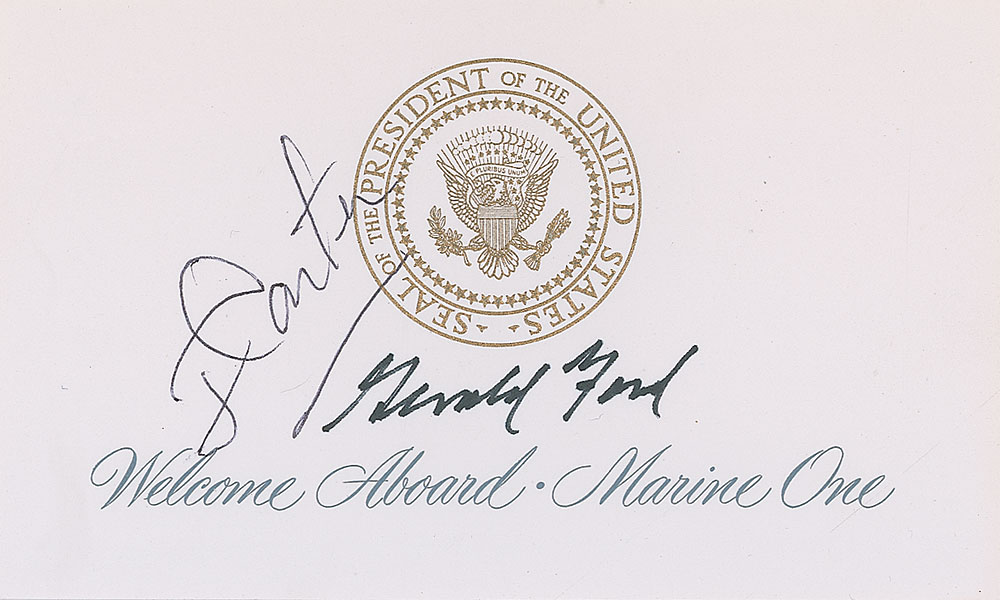 SEAL OF THE PRESIDENT OF THE UNITED STATES
E PLURIBUS UNUM
J Carter
Gerald Ford
Welcome Aboard · Marine One